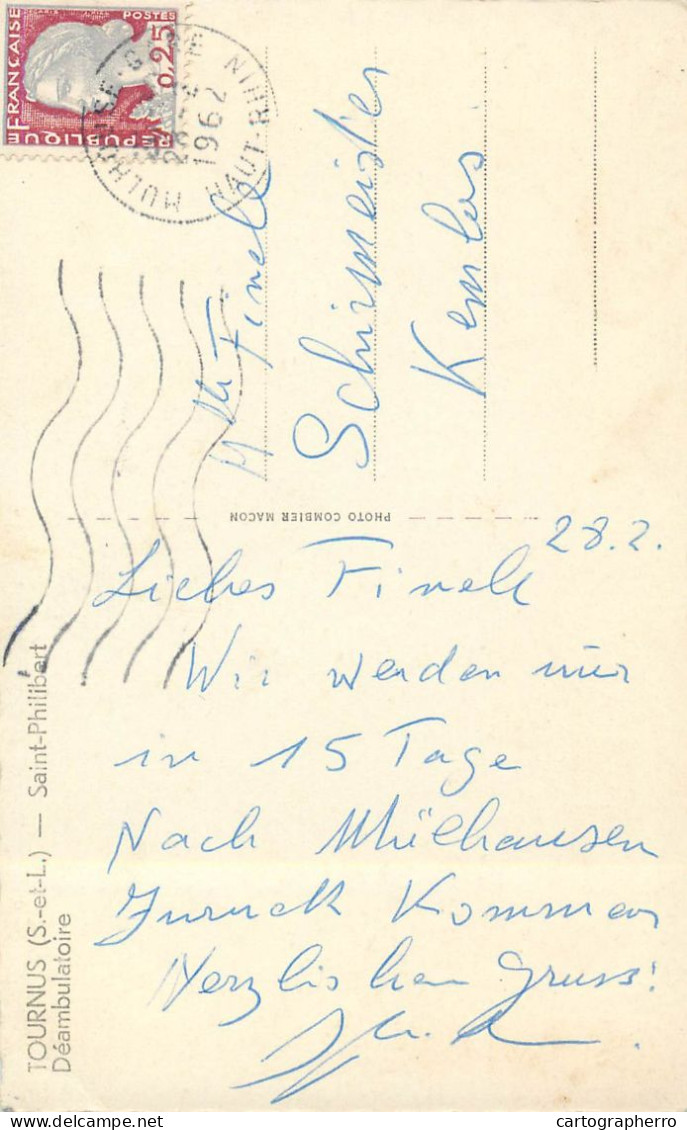 REPUBLIQUE FRANÇAISE
POSTES
0,25
MULHOUSE-GARE
1962
HAUT-RHIN
Finele
Schirmeister
Kembs
PHOTO COMBIER MACON
28.2.
Liebes Finele
Wir werden nur
in 15 Tage
Nach Mülhausen
Zuruck Kommen
Herzlichen Gruss!
TOURNUS (S.-et-L.) — Saint-Philibert
Déambulatoire
cartographerro